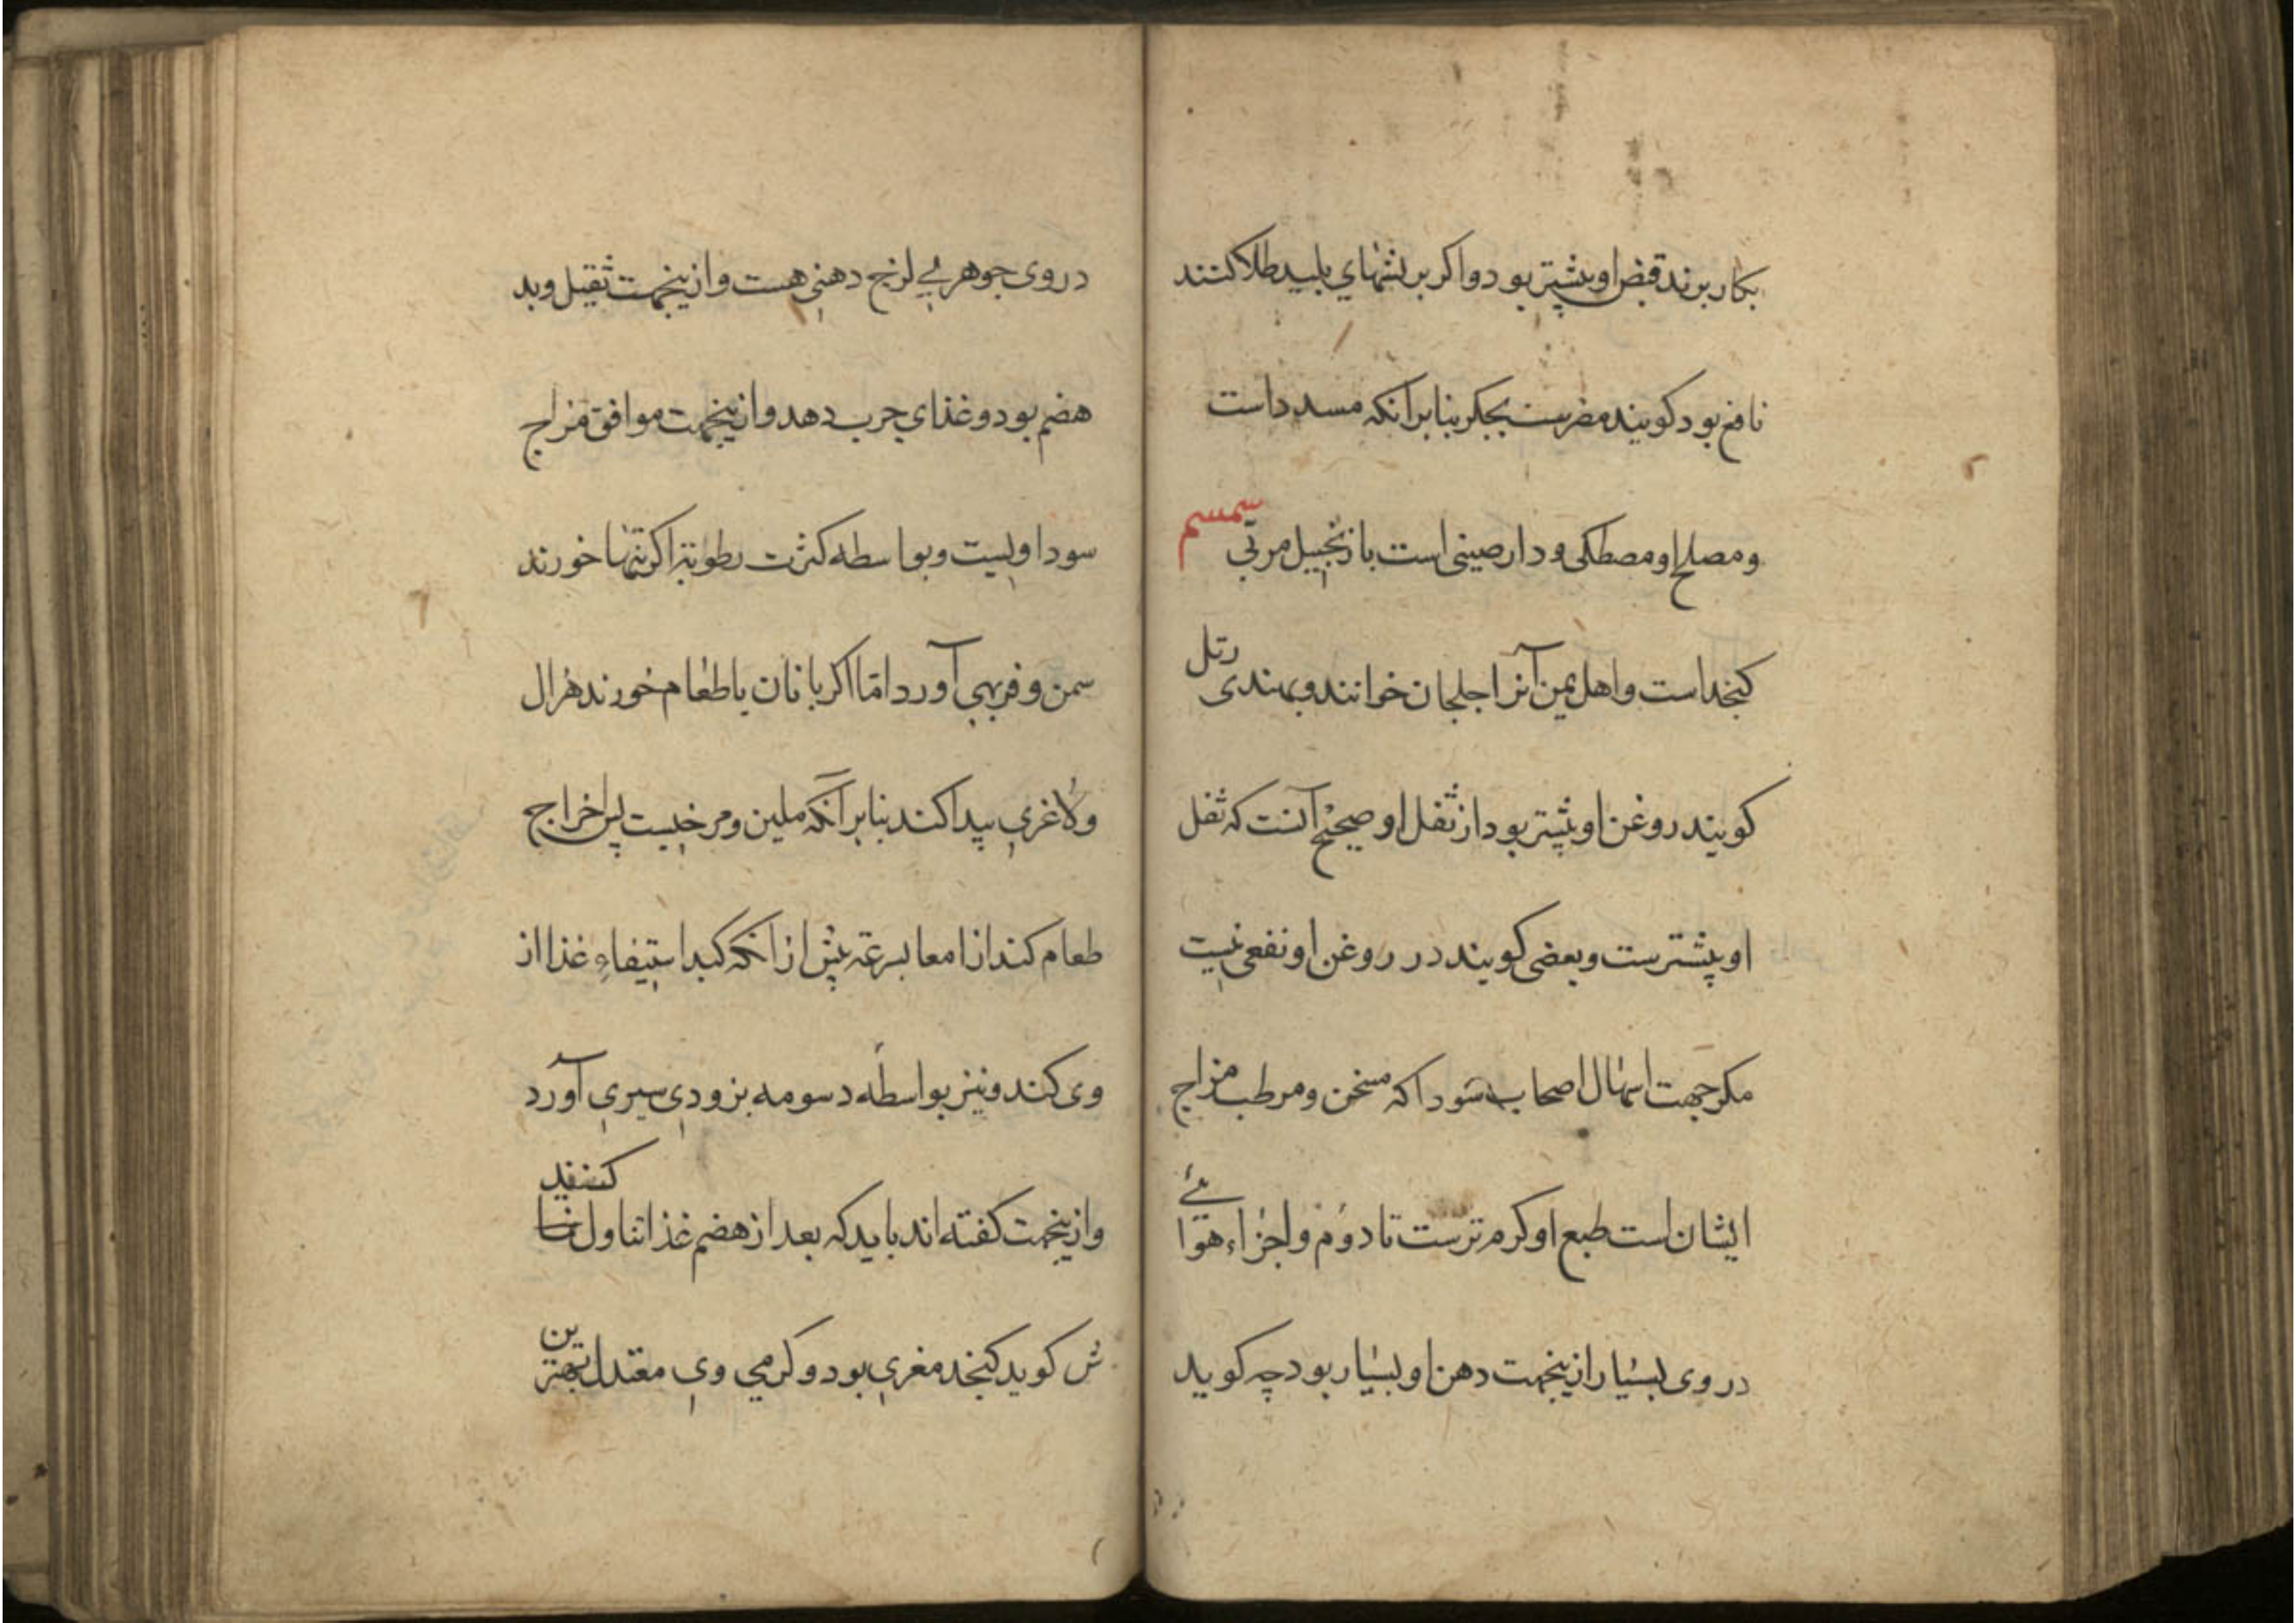 بکار برند قبض او بیشتر بود و اکر بر ریشهاي پلید طلا کنند
نافع بود کویند مضرست بجکر بنابر آنکه مسدد است
و مصلح او مصطکی و دارصینی است با زنجبیل مربّی سمسم
کنجد است و اهل یمن آنرا جلجان خوانند و بهندی رتل
کویند روغن او بیشتر بود از ثفل او و صحیح آنست که ثفل
او بیشترست و بعضی کویند در روغن او نفعی نیست
مکر جهت اسهال اصحاب سودا که مسخن و مرطب مزاج
ایشان است طبع او کرم ترست تا دوم و اجزاء هوائے
در وی بسیار ازینجهت دهن او بسیار بود چه کوید
در وی جوهریے لزج دهنی هست و ازینجهت ثقیل و بد
هضم بود و غذاي چرب دهد و ازینجهت موافق مزاج
سوداویست و بواسطه کثرت رطوبة اکر تنها خورند
سمن و فربهي آورد امّا اکر با نان یا طعام خورند هزال
و لاغري پیدا کند بنابر آنکه ملین و مرخیست پس اخراج
طعام کند از امعا بسرعة پیش از آنکه کبد استیفاءِ غذا از
وی کند و نیز بواسطه دسومه بزودي سیري آورد
و ازینجهت کفته اند باید که بعد از هضم غذا تناول کنند
ش کوید کنجد مغري بود و کرمي وي معتدل بهترین